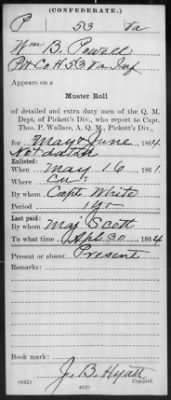 (CONFEDERATE.)
P 53 Va
Wm B. Powell
Pvt Co. H 53 Va Inf
Appears on a
Muster Roll
of detailed and extra duty men of the Q. M.
Dept. of Pickett's Div., who report to Capt.
Theo. P. Wallace, A. Q. M., Pickett's Div.,
for May & June, 1864
Not dated
Enlisted:
When May 16, 1861.
Where
By whom Capt. White
Period 1 yr
Last paid:
By whom Maj Scott
To what time Apl. 30, 1864
Present or absent Present
Remarks:
Book mark:
J. B. Hyatt
(642) Copyist.